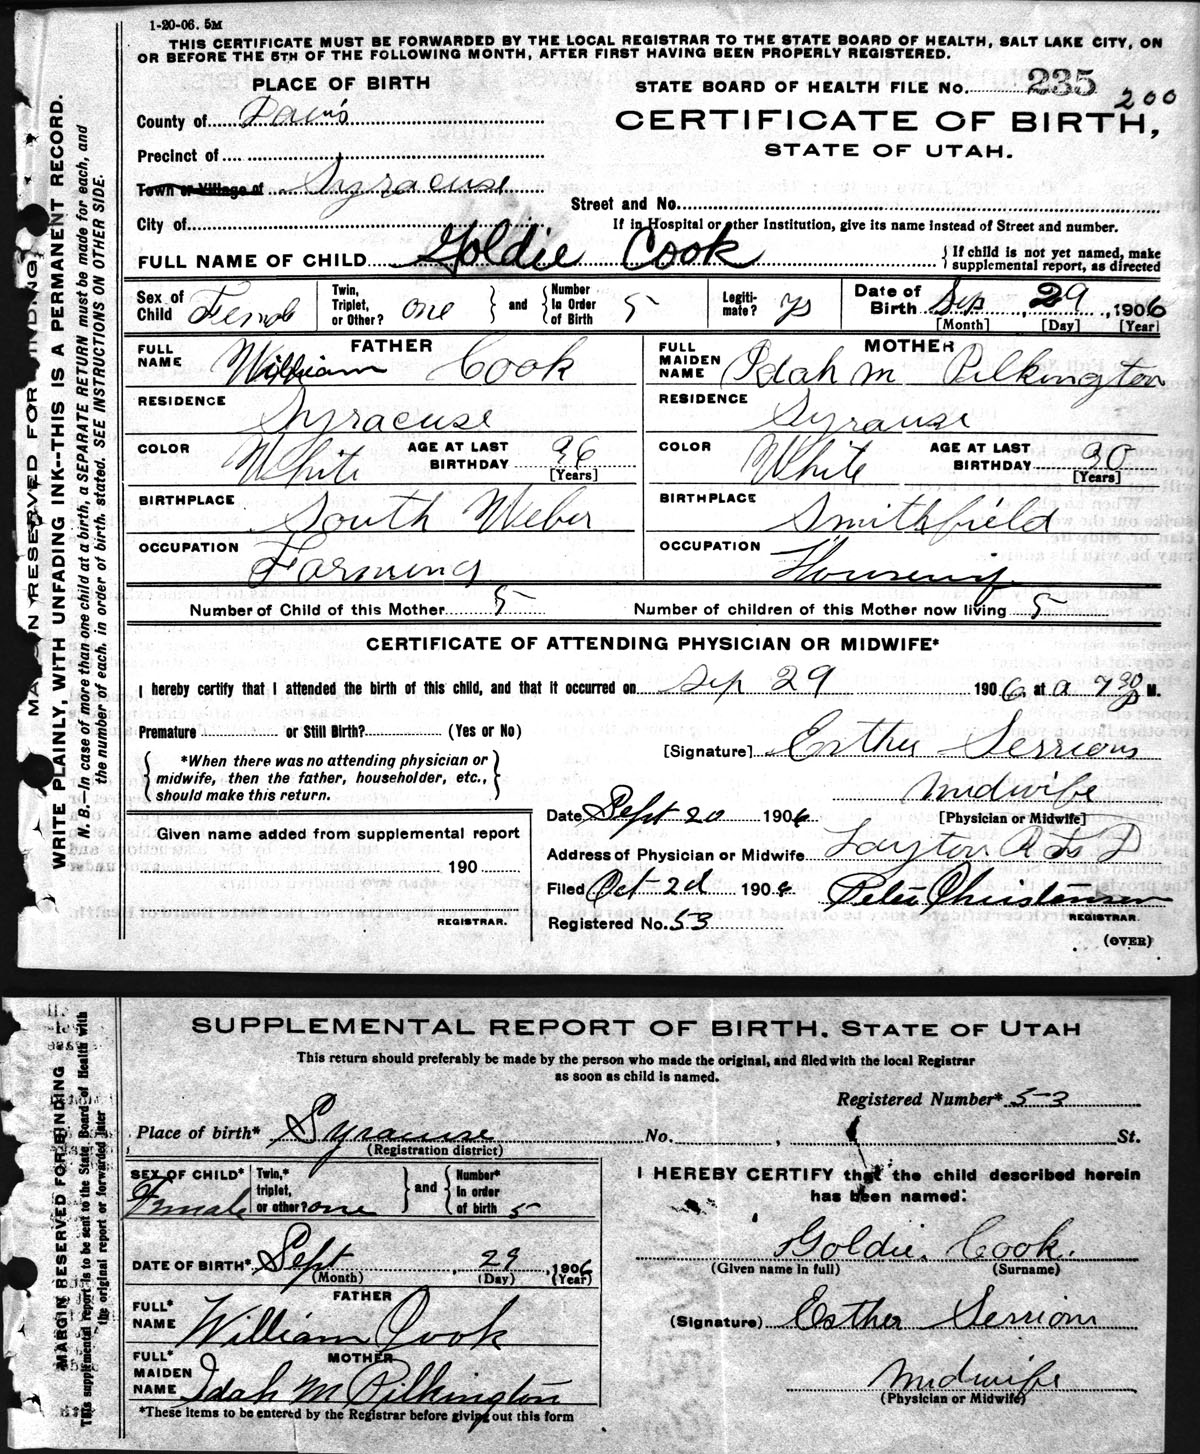 1-20-06. 5M
THIS CERTIFICATE MUST BE FORWARDED BY THE LOCAL REGISTRAR TO THE STATE BOARD OF HEALTH, SALT LAKE CITY, ON
OR BEFORE THE 5TH OF THE FOLLOWING MONTH, AFTER FIRST HAVING BEEN PROPERLY REGISTERED.
PLACE OF BIRTH
STATE BOARD OF HEALTH FILE No. 235 200
County of Davis
CERTIFICATE OF BIRTH,
STATE OF UTAH.
Precinct of
Town or Village of Syracuse
Street and No.
City of
If in Hospital or other Institution, give its name instead of Street and number.
FULL NAME OF CHILD Goldie Cook { If child is not yet named, make supplemental report, as directed
Sex of Child Female Twin, Triplet, or Other? one } and { Number In Order of Birth 5 Legitimate? ys Date of Birth Sep 29, 1906
[Month] [Day] [Year]
FATHER
FULL NAME William Cook
RESIDENCE Syracuse
COLOR White AGE AT LAST BIRTHDAY 36 [Years]
BIRTHPLACE South Weber
OCCUPATION Farming
MOTHER
FULL MAIDEN NAME Idah M Pilkington
RESIDENCE Syrause
COLOR White AGE AT LAST BIRTHDAY 30 [Years]
BIRTHPLACE Smithfield
OCCUPATION Housewif
Number of Child of this Mother 5 Number of children of this Mother now living 5
CERTIFICATE OF ATTENDING PHYSICIAN OR MIDWIFE*
I hereby certify that I attended the birth of this child, and that it occurred on Sep 29 1906, at a 7 30 P M.
Premature or Still Birth? (Yes or No)
[Signature] Esther Sessions
{ *When there was no attending physician or midwife, then the father, householder, etc., should make this return. }
midwife
[Physician or Midwife]
Date Sept 20 1906
Given name added from supplemental report
190
REGISTRAR.
Address of Physician or Midwife Layton
Filed Oct 2d 1906 Peter Christensen
REGISTRAR.
Registered No. 53
(OVER)
MARGIN RESERVED FOR BINDING
WRITE PLAINLY, WITH UNFADING INK--THIS IS A PERMANENT RECORD.
N. B.—In case of more than one child at a birth, a SEPARATE RETURN must be made for each, and
the number of each, in order of birth, stated. SEE INSTRUCTIONS ON OTHER SIDE.
SUPPLEMENTAL REPORT OF BIRTH. STATE OF UTAH
This return should preferably be made by the person who made the original, and filed with the local Registrar
as soon as child is named.
Registered Number* 53
Place of birth* Syracuse No. , St.
(Registration district)
SEX OF CHILD* Female Twin,* triplet, or other? one } and { Number* in order of birth 5
I HEREBY CERTIFY that the child described herein
has been named:
Goldie Cook.
(Given name in full) (Surname)
DATE OF BIRTH* Sept, 29, 1906
(Month) (Day) (Year)
FATHER
FULL* NAME William Cook
(Signature) Esther Sessions
MOTHER
FULL* MAIDEN NAME Idah M Pilkington
midwife
(Physician or Midwife)
*These items to be entered by the Registrar before giving out this form
MARGIN RESERVED FOR BINDING
This supplemental report is to be sent to the State Board of Health with
the original report or forwarded later